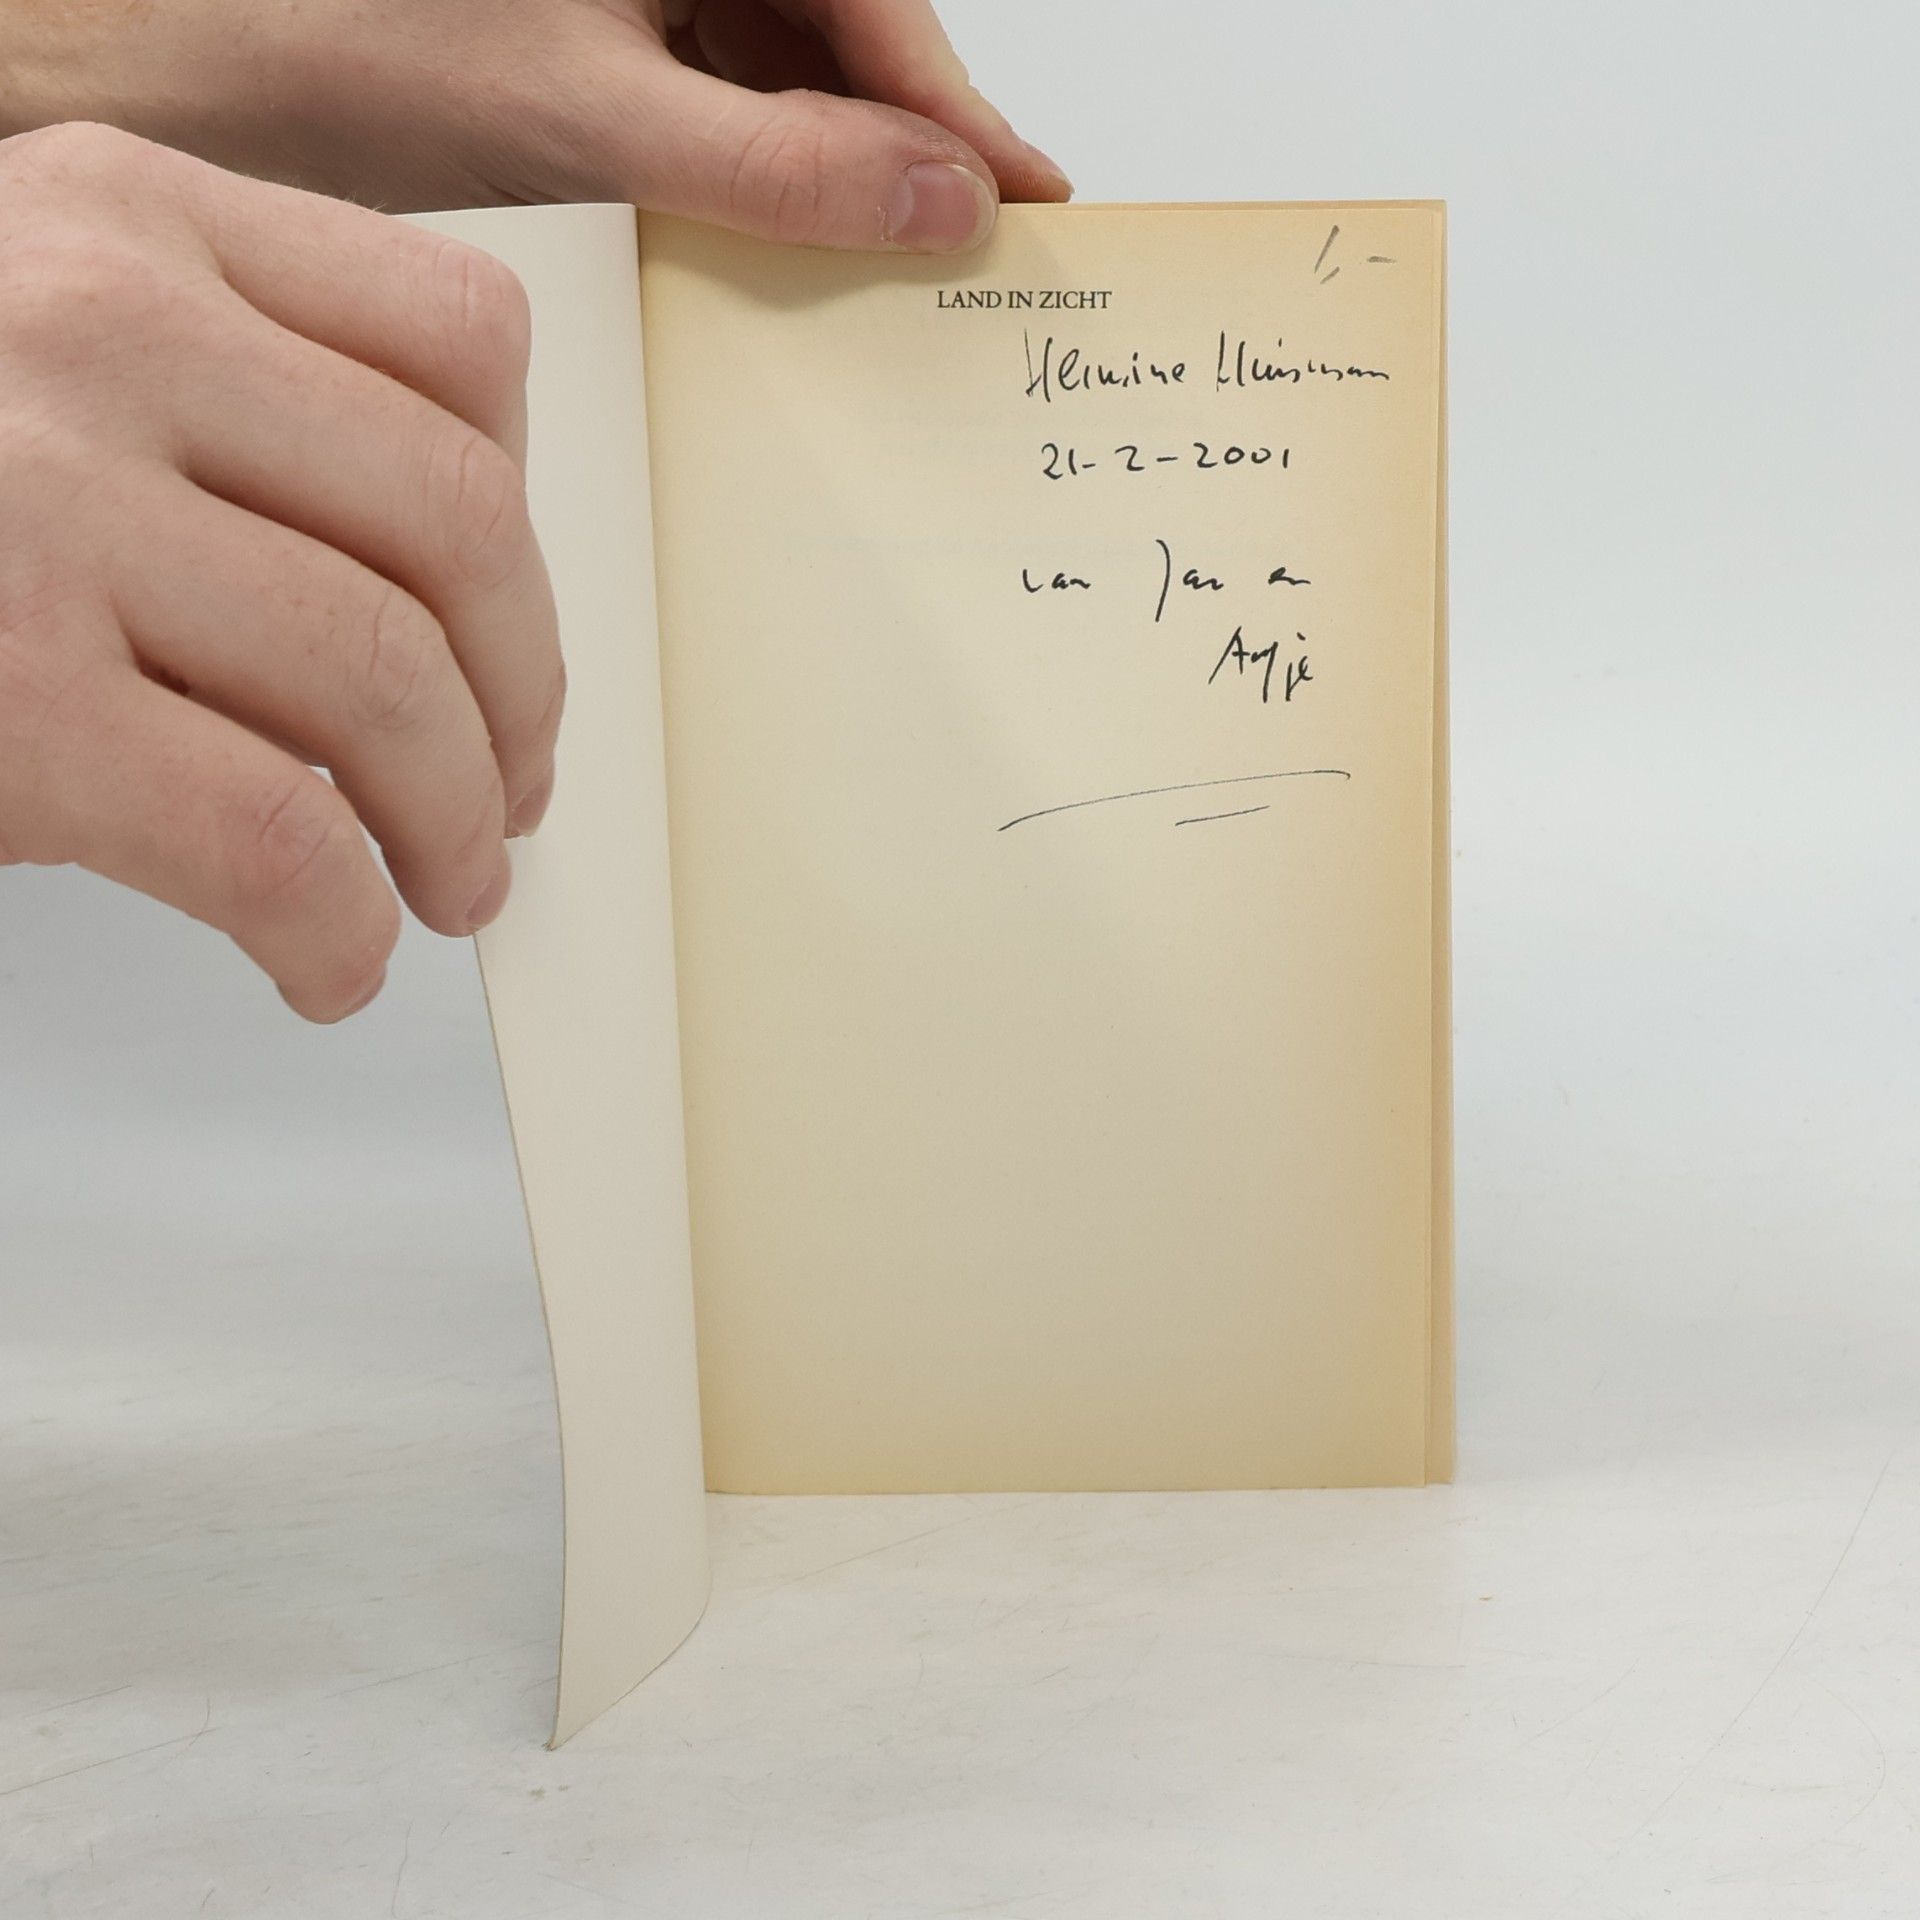 1,-
LAND IN ZICHT
Hermine Huisman
21-2-2001
van Jan en